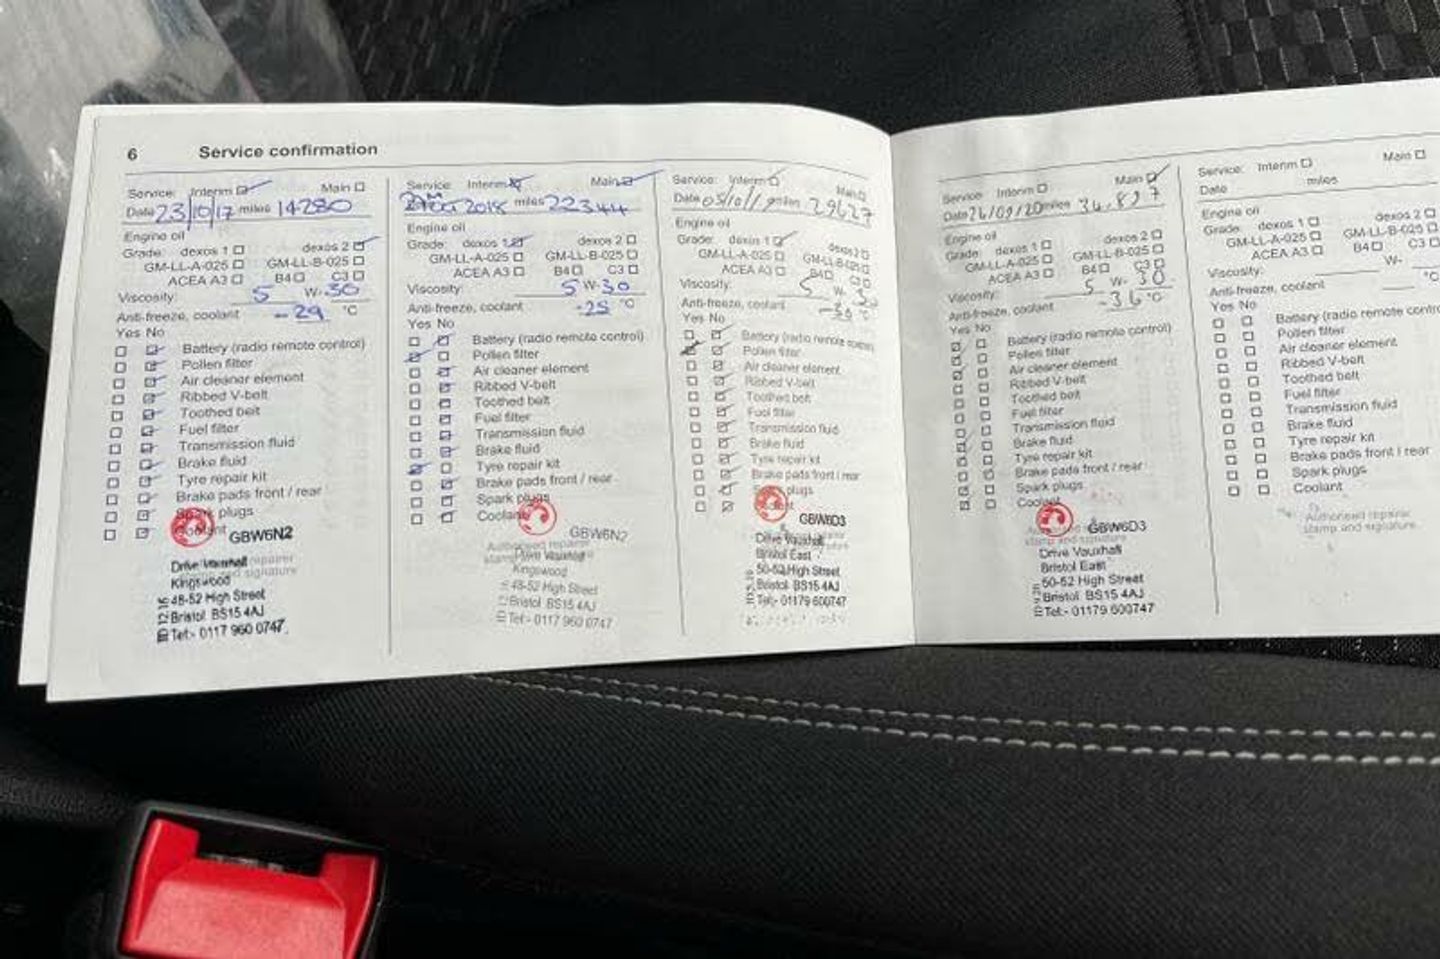 6 Service confirmation
Service: Interim Main
Date 23/10/17 miles 14280
Engine oil
Grade: dexos 1 dexos 2
GM-LL-A-025 GM-LL-B-025
ACEA A3 B4 C3
Viscosity: 5 W-30
Anti-freeze, coolant -29 °C
Yes No
Battery (radio remote control)
Pollen filter
Air cleaner element
Ribbed V-belt
Toothed belt
Fuel filter
Transmission fluid
Brake fluid
Tyre repair kit
Brake pads front / rear
Spark plugs
Coolant
GBW6N2
Drive Vauxhall
Kingswood
48-52 High Street
Bristol BS15 4AJ
Tel:- 0117 960 0747
Service: Interim Main
2018 miles 22344
Engine oil
Grade: dexos 1 dexos 2
GM-LL-A-025 GM-LL-B-025
ACEA A3 B4 C3
Viscosity: 5 W-30
Anti-freeze, coolant -25 °C
Yes No
Battery (radio remote control)
Pollen filter
Air cleaner element
Ribbed V-belt
Toothed belt
Fuel filter
Transmission fluid
Brake fluid
Tyre repair kit
Brake pads front / rear
Spark plugs
Coolant
GBW6N2
Authorised repairer
Drive Vauxhall
Kingswood
48-52 High Street
Bristol BS15 4AJ
Tel:- 0117 960 0747
Service: Interim Main
Date 05/10/19 miles 29627
Engine oil
Grade: dexos 1 dexos 2
GM-LL-A-025 GM-LL-B-025
ACEA A3 B4 C3
Viscosity: 5 W-30
Anti-freeze, coolant °C
Yes No
Battery (radio remote control)
Pollen filter
Air cleaner element
Ribbed V-belt
Toothed belt
Fuel filter
Transmission fluid
Brake fluid
Tyre repair kit
Brake pads front / rear
Spark plugs
Coolant
GBW6D3
Drive Vauxhall
Bristol East
50-52 High Street
Bristol BS15 4AJ
Tel:- 01179 600747
Service: Interim Main
Date 26/09/20 miles 34,897
Engine oil
Grade: dexos 1 dexos 2
GM-LL-A-025 GM-LL-B-025
ACEA A3 B4 C3
Viscosity: 5 W-30
Anti-freeze, coolant -36 °C
Yes No
Battery (radio remote control)
Pollen filter
Air cleaner element
Ribbed V-belt
Toothed belt
Fuel filter
Transmission fluid
Brake fluid
Tyre repair kit
Brake pads front / rear
Spark plugs
Coolant
GBW6D3
stamp and signature
Drive Vauxhall
Bristol East
50-52 High Street
Bristol BS15 4AJ
Tel:- 01179 600747
Service: Interim Main
Date miles
Engine oil
Grade: dexos 1 dexos 2
GM-LL-A-025 GM-LL-B-025
ACEA A3 B4 C3
Viscosity: W-
Anti-freeze, coolant °C
Yes No
Battery (radio remote
Pollen filter
Air cleaner element
Ribbed V-belt
Toothed belt
Fuel filter
Transmission fluid
Brake fluid
Tyre repair kit
Brake pads front / rear
Spark plugs
Coolant
Authorised repairer
stamp and signature